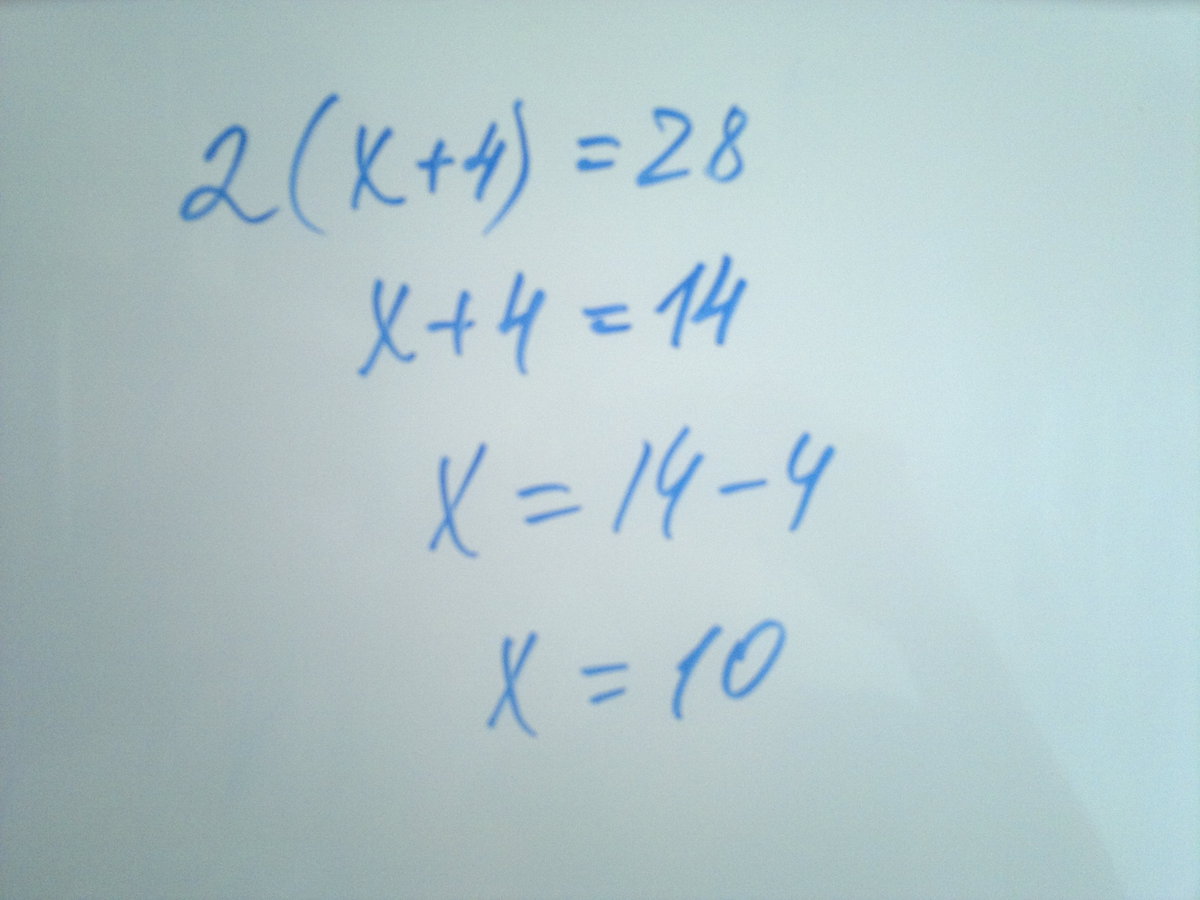 2(x+4)=28
x+4=14
x=14-4
x=10